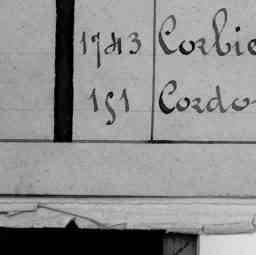 1743 Corbie
151 Cordo